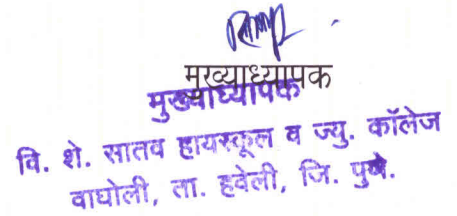 मुख्याध्यापक
मुख्याध्यापक
वि. शे. सातव हायस्कूल व ज्यु. कॉलेज
वाघोली, ता. हवेली, जि. पुणे.